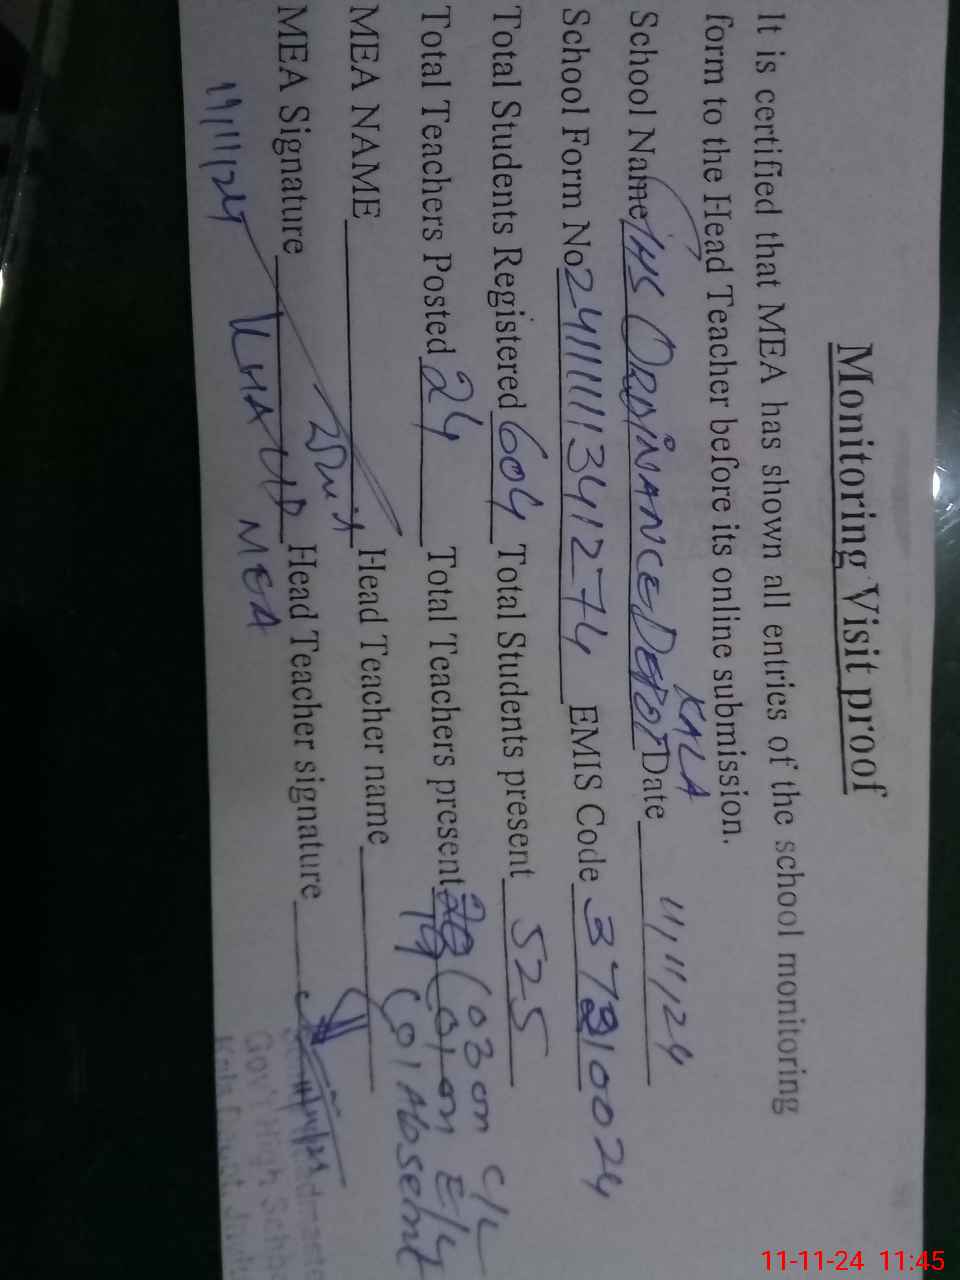 Monitoring Visit proof
It is certified that MEA has shown all entries of the school monitoring
form to the Head Teacher before its online submission.
School Name GHS ORDINANCE DEPOT KALA Date 11/11/24
School Form No 24111111341274 EMIS Code 37310024
Total Students Registered 604 Total Students present 525
Total Teachers Posted 24 Total Teachers present 19 (03 on C/L
(01 on E/L
(01 Absent
MEA NAME Head Teacher name
MEA Signature Head Teacher signature
11/11/24 MEA
11/11/24
Gov't High School
11-11-24 11:45